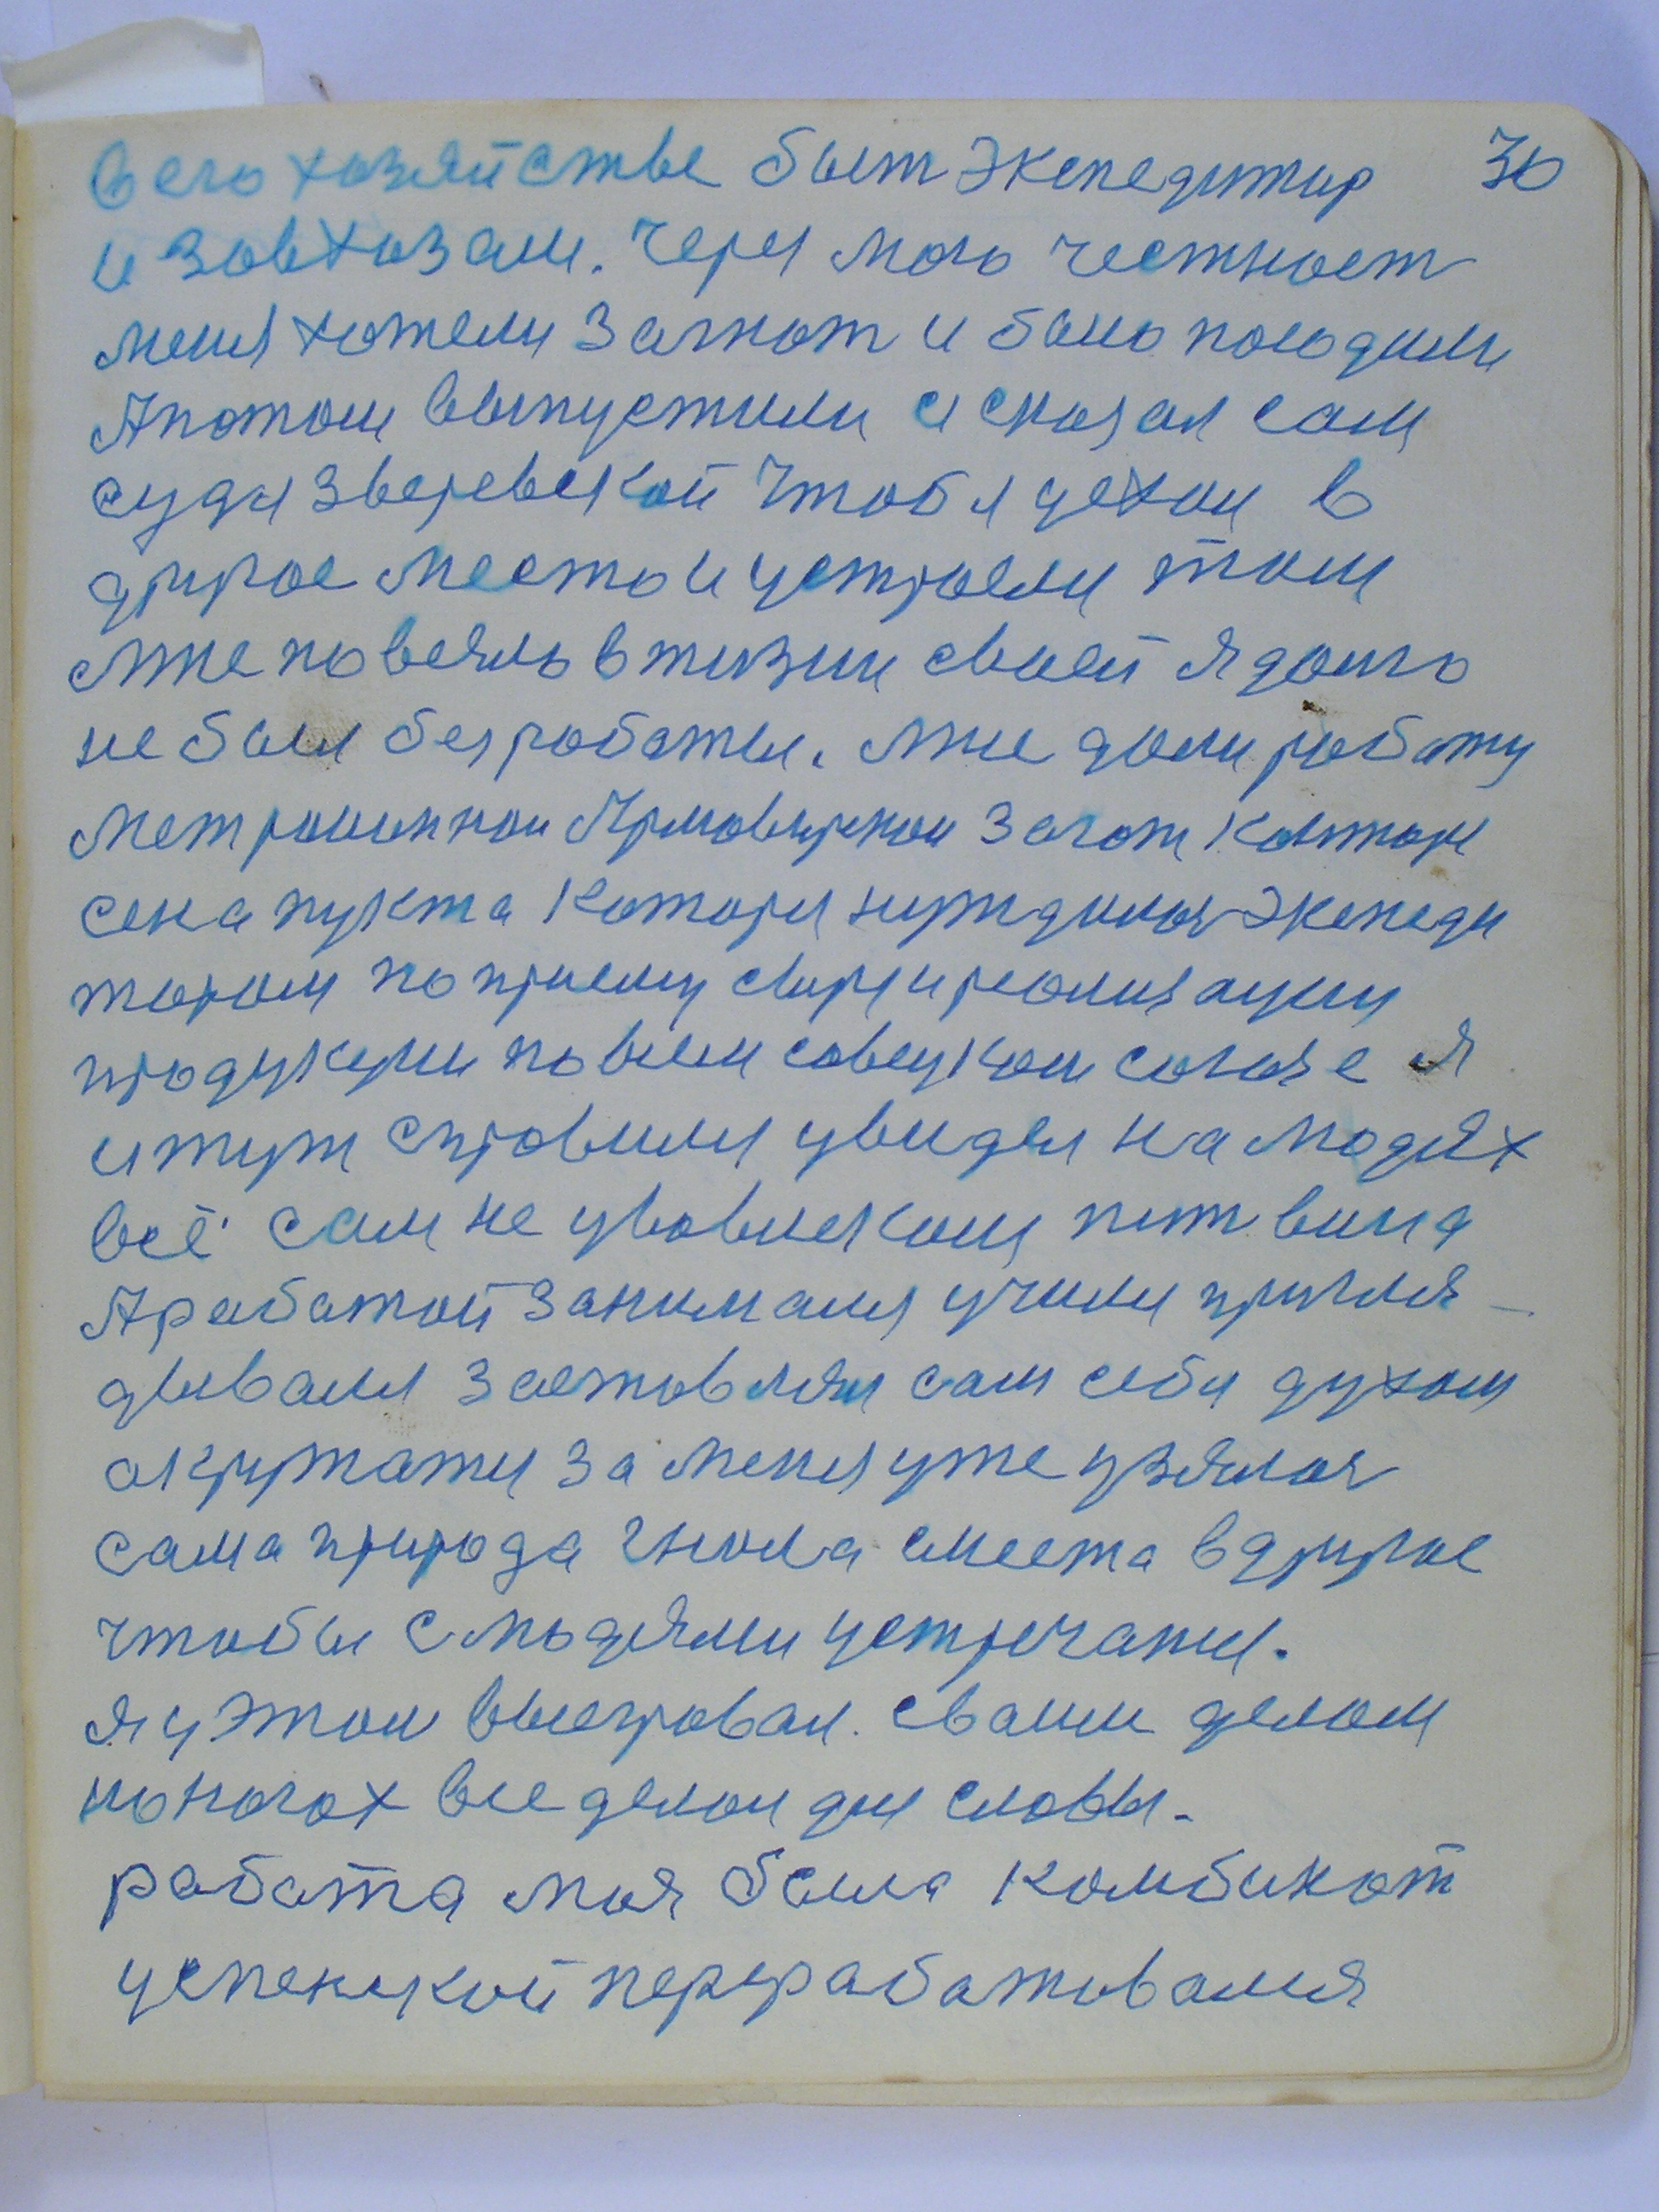 в его хозяйстве быт экспедитир 30
и завхозам. Через мою честност
меня хотели загнат и было посодили
А потом выпустили и сказал сам
судя зверевской чтоб я уехал в
другое место и устроели там
мне повезло в жизни своей я долго
не был без работы. мне дали работу
Метрошинной Армовирской загот конторе
сена пукта которя нуждилас экспеди
торам по приему сыря и реализацыи
продукцыи по всем совецком союзе я
и тут справился увидел на людях
всё сам не увовлекался пит вина
А работой занимался училися пригля-
дывался заставлял сам себя духом
окружатся за меня уже узялас
сама природа гнала сместа в другое
чтобы с людями устречатся.
я у этом выегравал. сваим делом
на ногах все делал для славы.
работа моя была комбинат
успенской перерабатовался